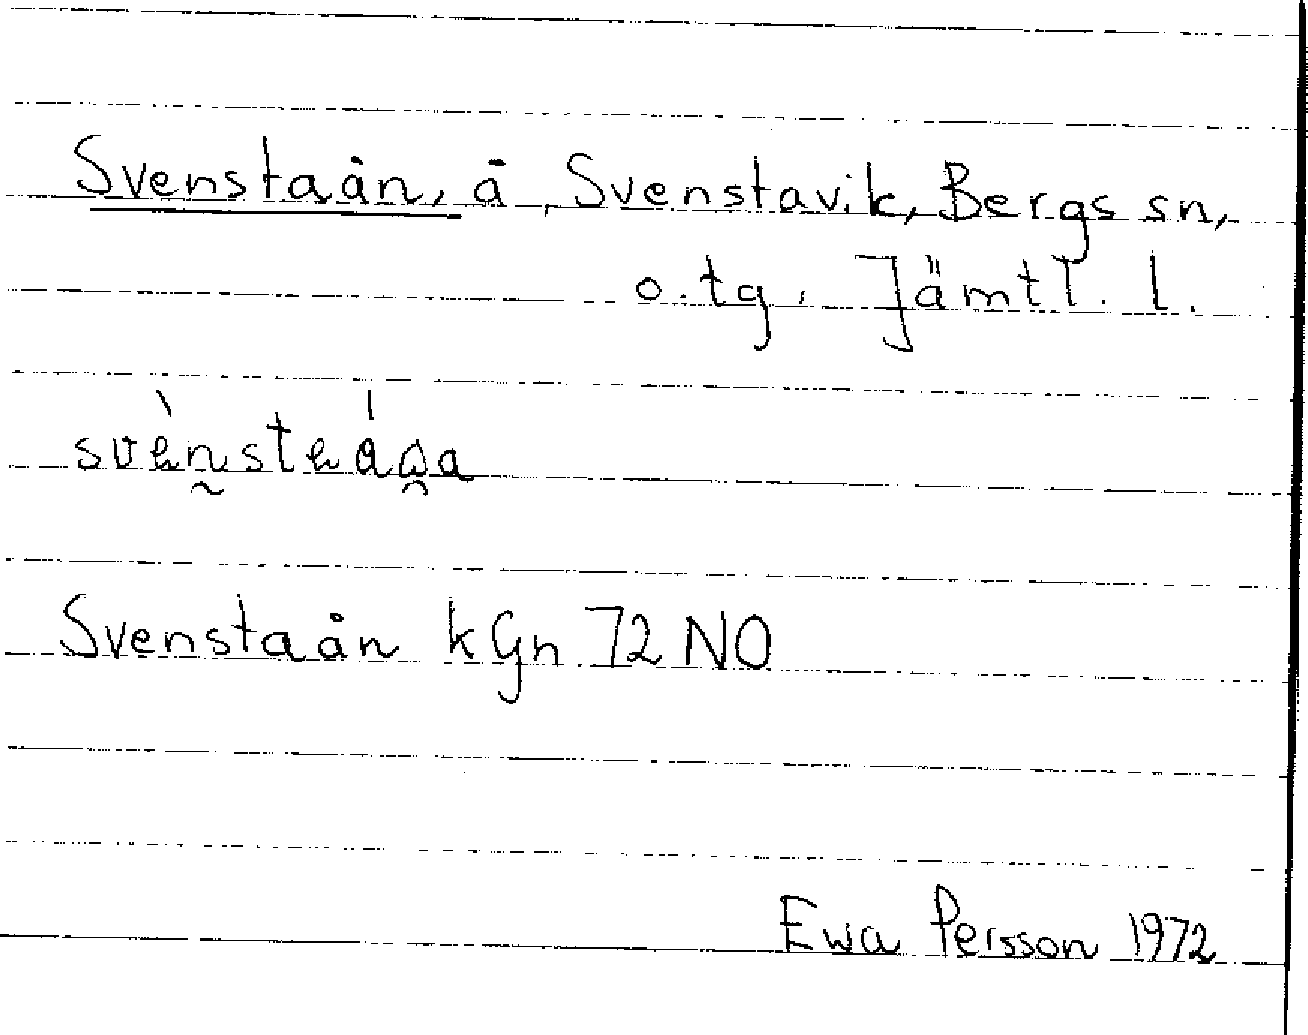 Svenstaån, å, Svenstavik, Bergs sn,
o. tg. Jämtl. l.
Svenstaån kGn 72 NO
Ewa Persson 1972